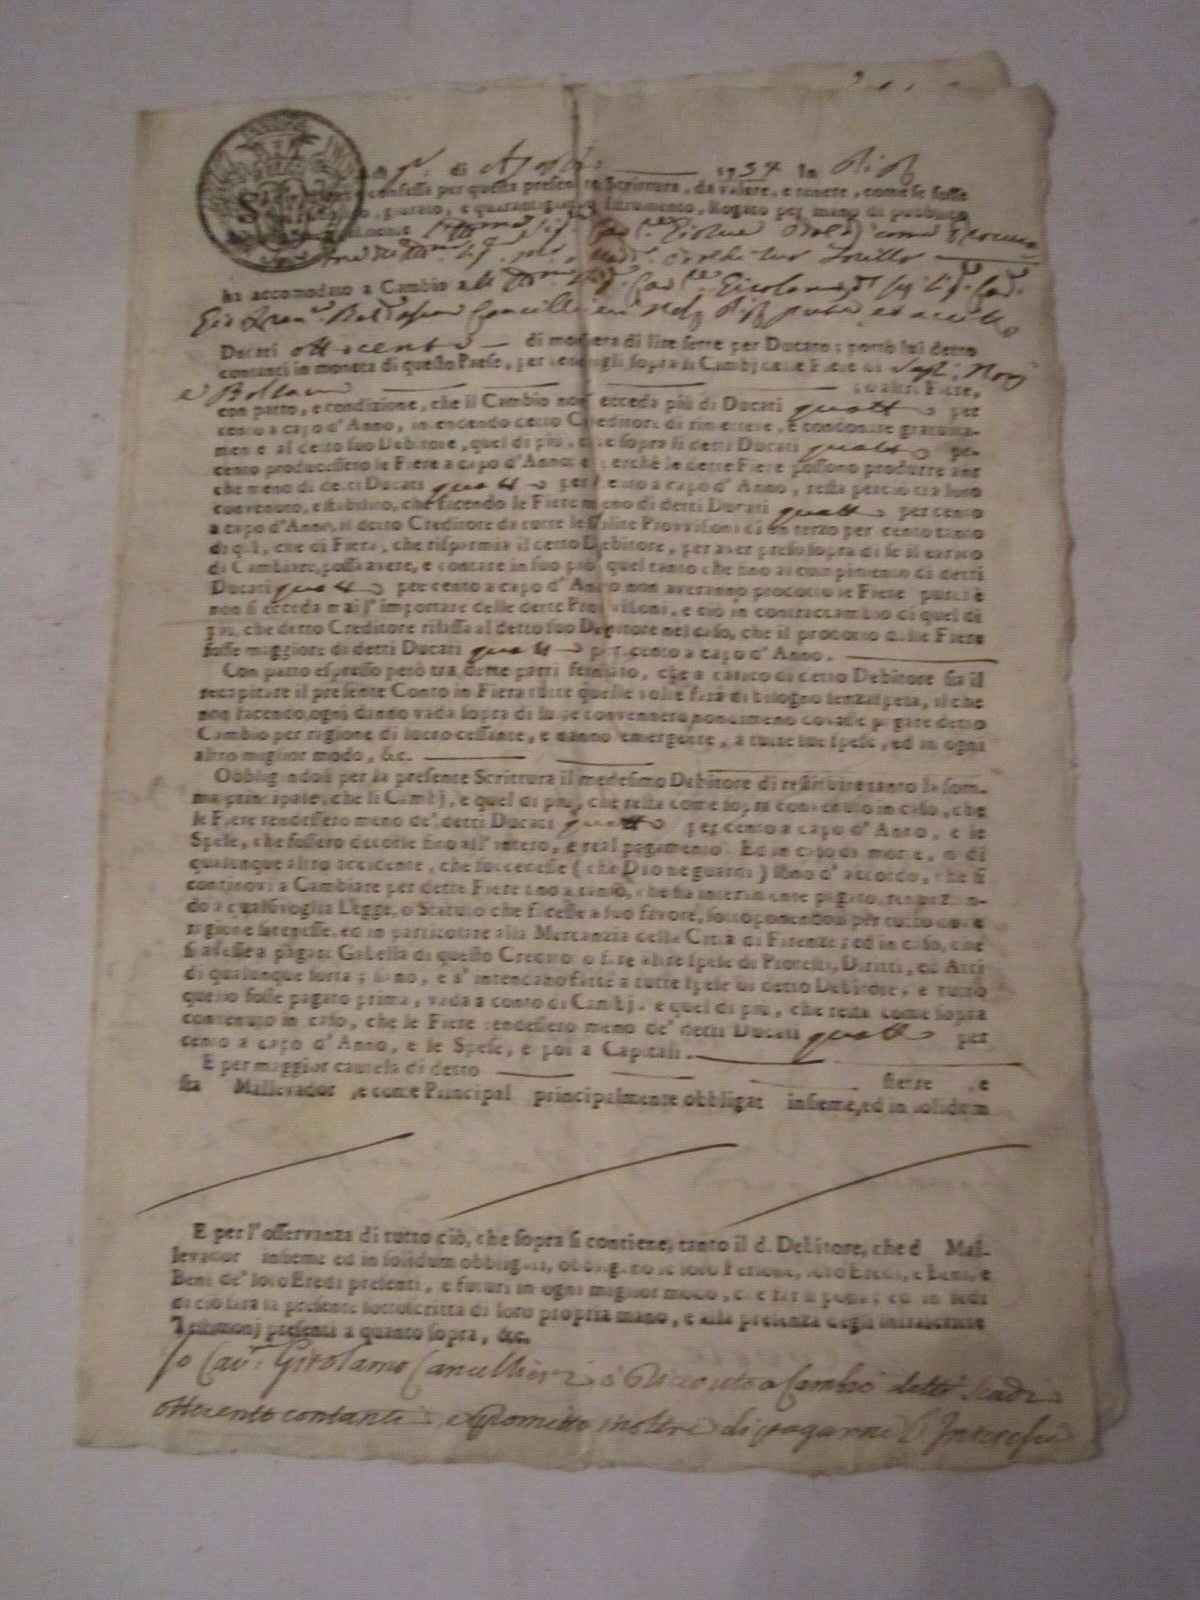 di di Agosto 1734 In
confessa per questa presente Scrittura, da valere, e tenere, come se fusse
, giurato, e quarantigiato Istrumento, Rogato per mano di pubblico
ha accomodato a Cambio al
Ducati ottocento di moneta di lire sette per Ducato; portò lui detto
contanti in moneta di questo Paese, per sopra li Cambj delle Fiere di
e Bolzano o altri Fiere,
con patto, e condizione, che il Cambio non ecceda più di Ducati quattro per
cento a capo d'Anno, intendendo detto Creditore di rimettere, e condonare gratuita-
mente al detto suo Debitore, quel di più, che sopra li detti Ducati quattro per
cento producessero le Fiere a capo d'Anno; e perchè le dette Fiere possono produrre an-
che meno di detti Ducati quattro per cento a capo d'Anno, resta perciò tra loro
convenuto, e stabilito, che facendo le Fiere meno di detti Ducati quattro per cento
a capo d'Anno, il detto Creditore da tutte le solite Provvisioni di un terzo per cento tanto
di quì, che di Fiera, che risparmia il detto Debitore, per aver preso sopra di se il carico
di Cambiare, possa avere, e contare in suo prò, quel tanto che fino al compimento di detti
Ducati quattro per cento a capo d'Anno non averanno prodotto le Fiere purchè
non si ecceda mai l'importare delle dette Provvisioni, e ciò in contraccambio di quel di
più, che detto Creditore rilassa al detto suo Debitore nel caso, che il prodotto delle Fiere
fosse maggiore di detti Ducati quattro per cento a capo d'Anno.
Con patto espresso però tra dette parti fermato, che a carico di detto Debitore sia il
recapitare il presente Conto in Fiera tutte quelle volte farà di bisogno senza spesa, il che
non facendo, ogni danno vada sopra di lui, e convennero nondimeno doversi pagare detto
Cambio per ragione di lucro cessante, e danno emergente, a tutte sue spese, ed in ogni
altro miglior modo, &c.
Obbligandosi per la presente Scrittura il medesimo Debitore di restituire tanto la som-
ma principale, che li Cambj, e quel di più, che resta come sopra convenuto in caso, che
le Fiere rendessero meno de' detti Ducati quattro per cento a capo d'Anno, e le
Spese, che fossero decorse fino all'intero, e real pagamento. Ed in caso di morte, o di
qualunque altro accidente, che succedesse (che Dio ne guardi) sono d'accordo, che si
continovi a Cambiare per dette Fiere fino a tanto, che sia interamente pagato,
do a qualsivoglia Legge, o Statuto che facesse a suo favore, sottoponendosi per tutto ad
ragione forense, ed in particolare alla Mercanzia della Città di Firenze; ed in caso, che
si avesse a pagare Gabella di questo Credito o fare altre spese di Protesti, Diritti, ed Atti
di qualunque sorta; siano, e s'intendano fatte a tutte spese di detto Debitore; e tutto
quello fosse pagato prima, vada a conto di Cambj, e quel di più, che resta come sopra
convenuto in caso, che le Fiere rendessero meno de' detti Ducati quattro per
cento a capo d'Anno, e le Spese, e poi a Capitali.
E per maggior cautela di detto stette, e
sta Mallevador, e come Principal principalmente obbligat insieme, ed in solidum
E per l'osservanza di tutto ciò, che sopra si contiene, tanto il d. Debitore, che d Mal-
levador insieme ed in solidum obbligati, obbligano le loro Persone, loro Eredi, e Beni, e
Beni de' loro Eredi presenti, e futuri in ogni miglior modo, che far si possa; ed in fede
di ciò sarà la presente sottoscritta di loro propria mano, e alla presenza degli infrascritti
Testimonj presenti a quanto sopra, &c.
Io Cav. Girolamo Cancellieri ò Ricevuto a Cambio detti Scudi
ottocento contanti, e prometto inoltre di pagarne l'Interesse